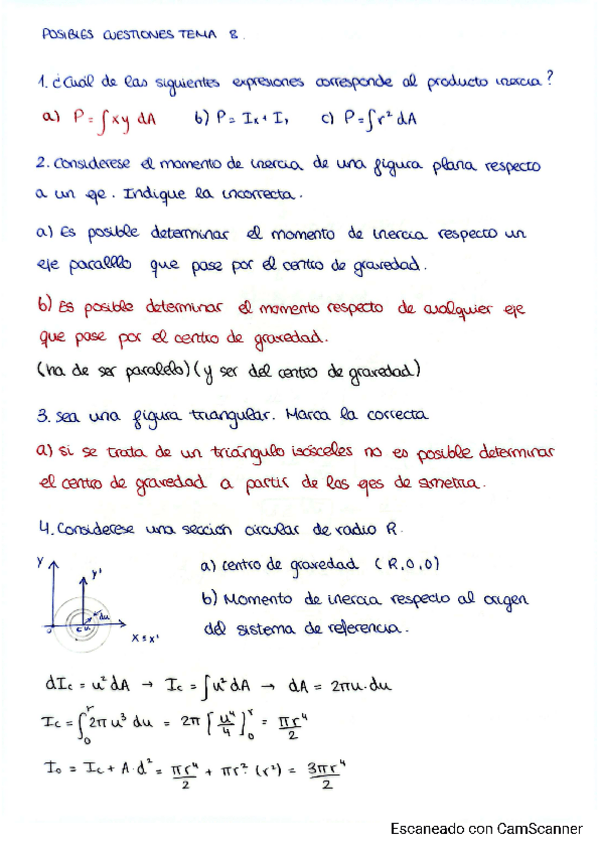 POSIBLES CUESTIONES TEMA 8.
1. ¿Cuál de las siguientes expresiones corresponde al producto inercia?
a) P = ∫xy dA b) P = Ix + Iy c) P = ∫r² dA
2. Considerese el momento de inercia de una figura plana respecto
a un eje. Indique la incorrecta.
a) Es posible determinar el momento de inercia respecto un
eje paralelo que pase por el centro de gravedad.
b) Es posible determinar el momento respecto de cualquier eje
que pase por el centro de gravedad.
(ha de ser paralelo) (y ser del centro de gravedad)
3. Sea una figura triangular. Marca la correcta
a) si se trata de un triángulo isósceles no es posible determinar
el centro de gravedad a partir de los ejes de simetria.
4. Considerese una sección circular de radio R.
y y'
a) centro de gravedad (R,0,0)
b) Momento de inercia respecto al origen
du
c u
del sistema de referencia.
x ≡ x'
dIc = u² dA → Ic = ∫u² dA → dA = 2πu·du
Ic = ∫₀ʳ 2π u³ du = 2π [u⁴/4]₀ʳ = πr⁴/2
I₀ = Ic + A·d² = πr⁴/2 + πr²·(r²) = 3πr⁴/2
Escaneado con CamScanner